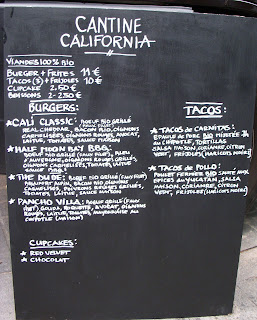 CANTINE
CALIFORNIA
VIANDES 100% BIO
BURGER + FRITES 11 €
TACOS (3) + FRIJOLES 10 €
CUPCAKE 2,50 €
BOISSONS 2 - 2,50 €
BURGERS:
★ CALI CLASSIC: BOEUF BIO GRILLÉ
(FAUX FILET)
REAL CHEDDAR, BACON BIO, OIGNONS
CARMELISÉES, OIGNONS ROUGES, AVOCAT,
LAITUE, TOMATE, SAUCE MAISON
★ HALF MOON BAY BBQ:
BOEUF BIO GRILLÉ (FAUX FILET), BLEU
D'AUVERGNE, OIGNONS ROUGES GRILLÉS,
LAITUE, TOMATE, SAUCE MAISON
★ THE DUDE: BOEUF BIO GRILLÉ (FAUX FILET)
LAITUE, SAUCE MAISON
★ PANCHO VILLA: BOEUF BIO GRILLÉ (FAUX
FILET) GOUDA, ROQUETTE, AVOCAT, OIGNONS
ROUGES, LAITUE, TOMATE, MAYONNAISE AU
CHIPOTLE (MAISON)
CUPCAKES:
★ RED VELVET
★ CHOCOLAT
TACOS:
★ TACOS DE CARNITAS:
EPAULE DE PORC BIO MIJOTÉE
AU CHIPOTLE, TORTILLAS
SALSA MAISON, CORIANDRE, CITRON
VERT, FRIJOLES (HARICOTS NOIRS)
★ TACOS DE POLLO:
POULET FERMIER BIO SAUCE AUX
EPICES DU YUCATAN, SALSA
MAISON, CORIANDRE, CITRON
VERT, FRIJOLES (HARICOTS NOIRS)